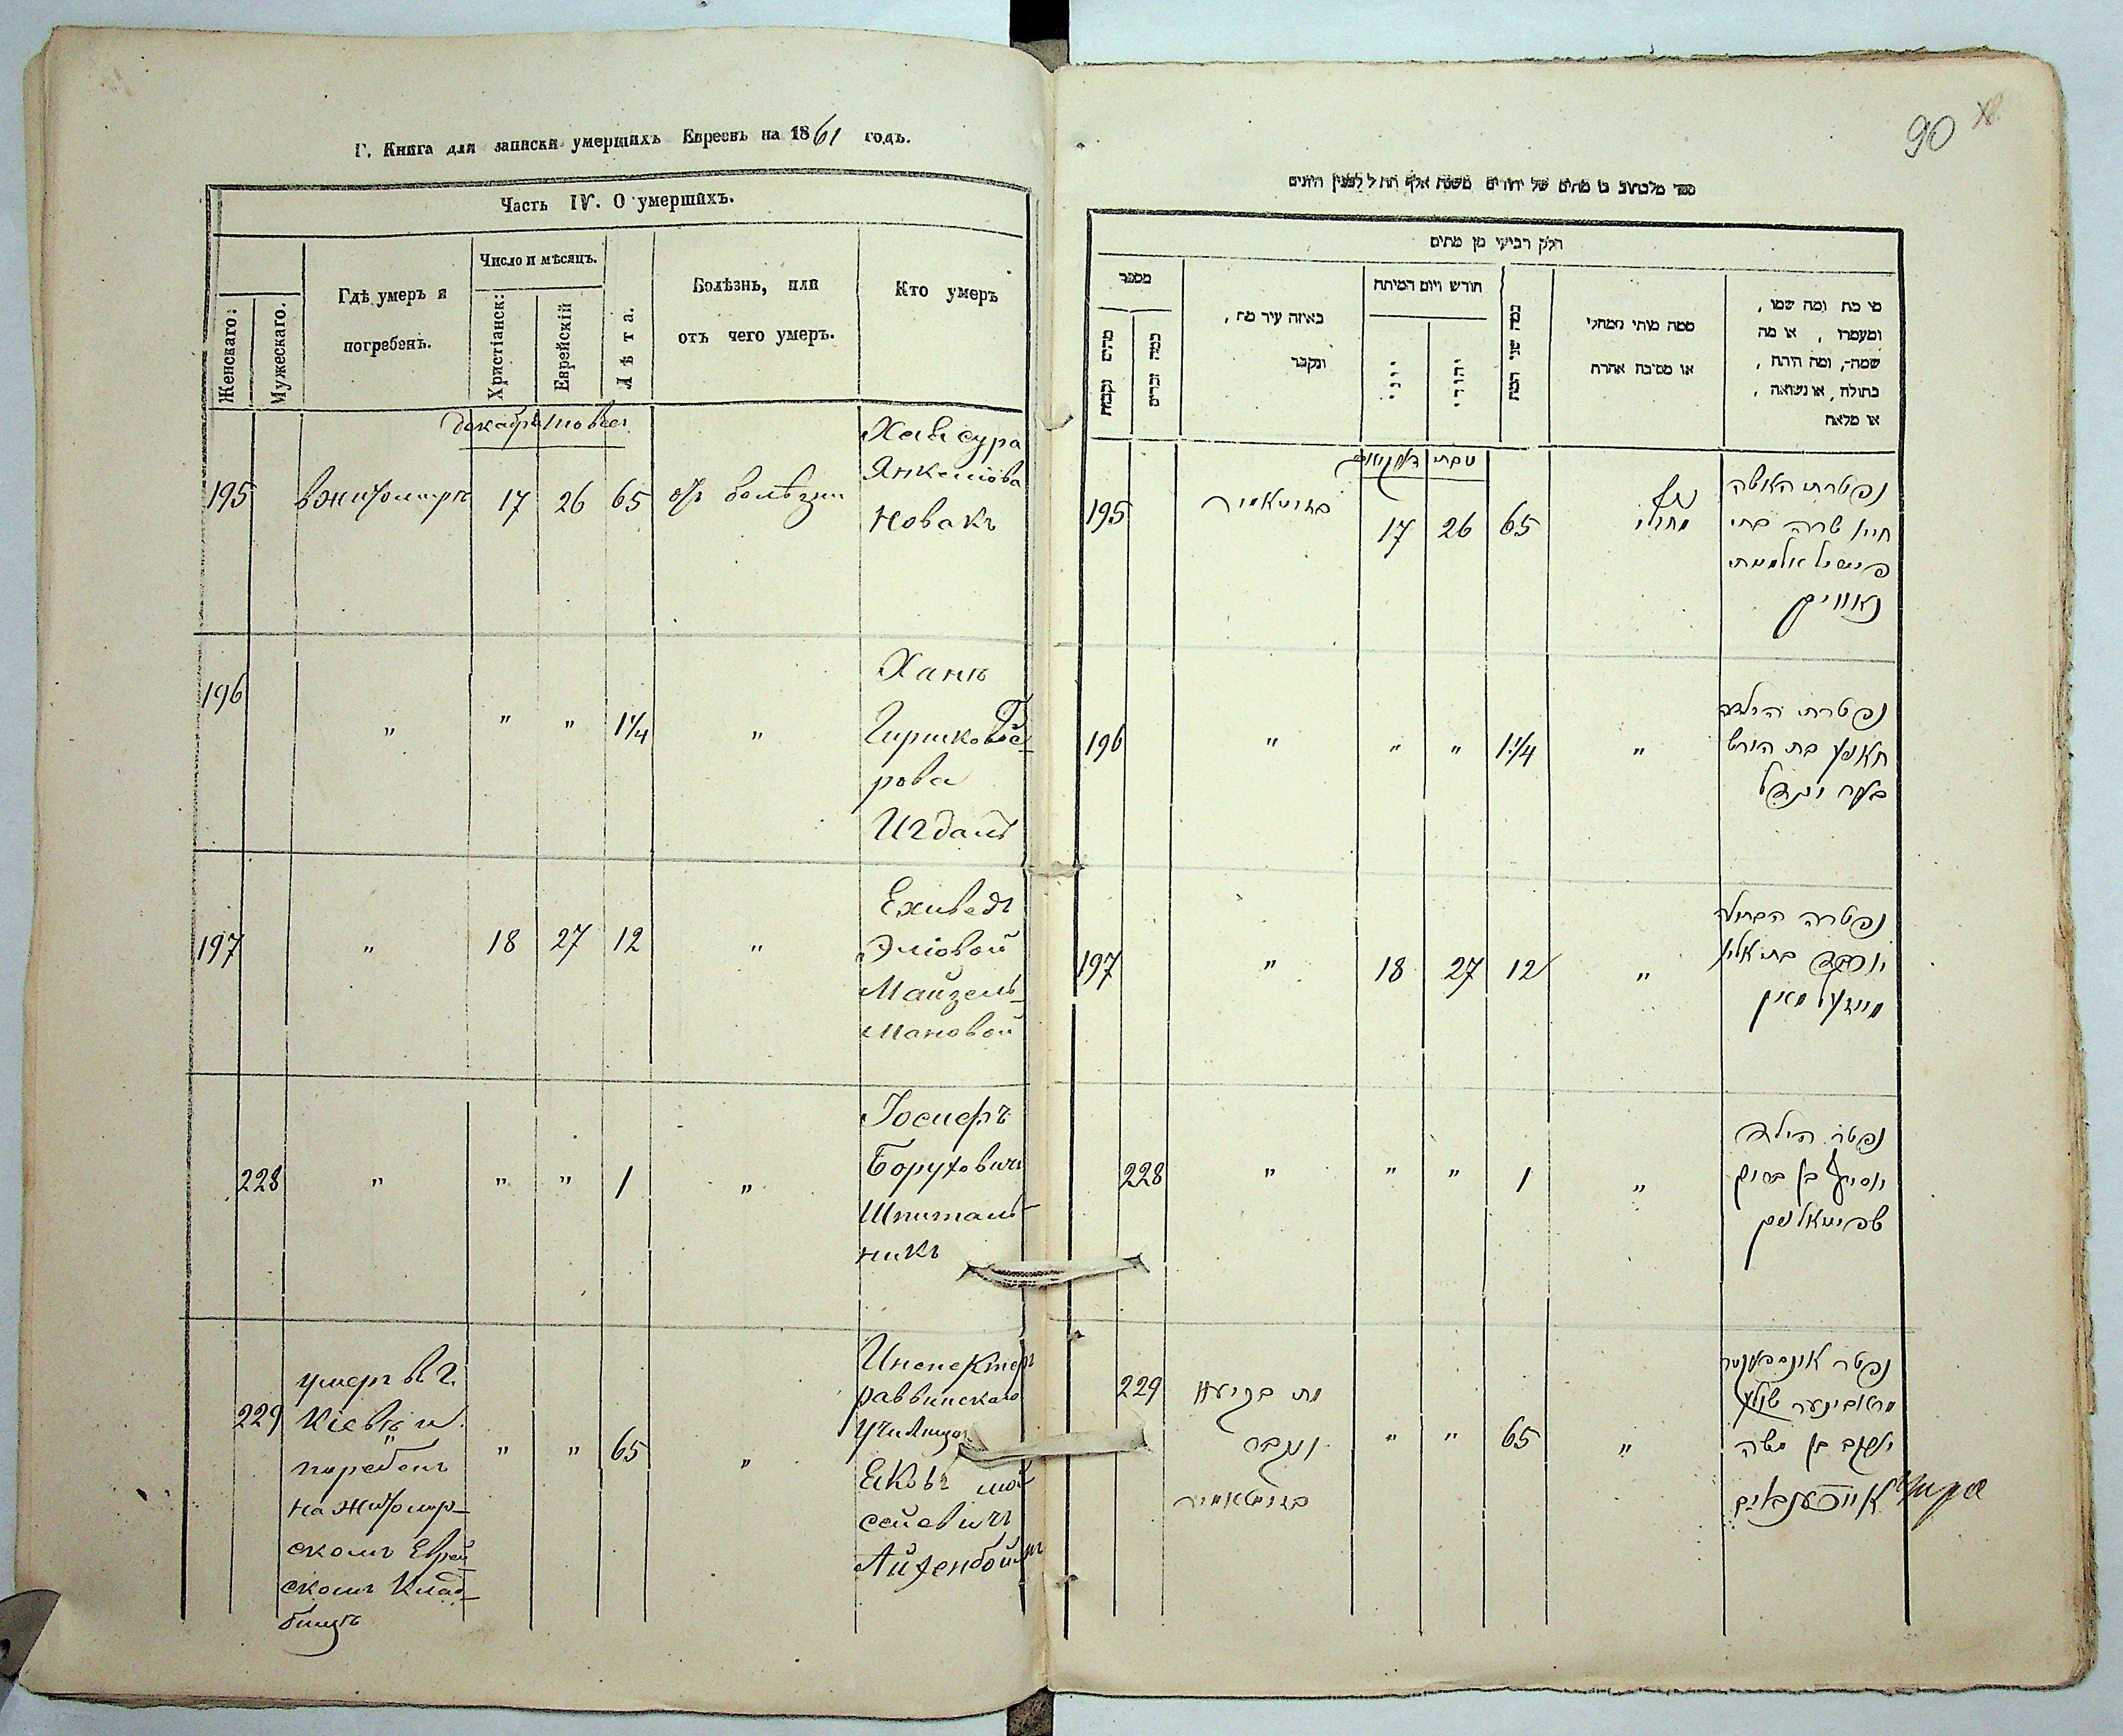 Г. Книга для записки умершихъ Евреевъ на 1861 годъ.
Часть IV. О умершихъ.
Женскаго:
Мужескаго.
Гдѣ умеръ и
погребенъ.
Число и мѣсяцъ.
Христіанск:
Еврейскій
Лѣта.
Болѣзнь, или
отъ чего умеръ.
Кто умеръ
декабрь
195 вжитомирѣ 17 26 65 отъ болѣзни
Хая сура
Янкелiова
Новакъ
196 " " " 1 1/4 "
Ханя
Гиршкова
рова
197 " 18 27 12 "
Ехиведъ
Элiовой
Майзель-
мановой
228 " " " 1 "
Іосифъ
Боруховичъ
Шпиталь-
никъ
229
умеръ в г.
Кіевѣ и
погребенъ
на Житомир-
скомъ Еврей
скомъ клад-
бищѣ
" " 65 "
Инспекторъ
раввинскаго
училища
Яковъ мой
сеевичъ
Айхенбоймъ
90
חלק רביעי מן מתים
מספר
מתים נקבות
כמה זכרים
באיזה עיר מת,
ונקבר
חודש ויום המיתה
יווני
יהודי
כמה שני המת
ממה מותי ממחלי
או מסיבת אחרת
מי מת ומה שמו,
ומעמדו, או מה
שמה, ומה היתה,
בתולה, או נשואה,
או מלאה
טבת דעקאבר
195 בזיטאמיר 17 26 65 מחולי
נפטרת האשה
חיי' שרה בת
נאוויק
196 " " " 1 1/4 "
נפטרת הילדה
חאניע בת הירש
בער
197 " 18 27 12 "
נפטרה הבתולה
יוכבד בת אליי'
מייזעל מאן
228 " " " 1 "
נפטר הילד
יוסיף בן ברוך
שפיטאלניק
229
מת בקיעוו
ונקבר
בזיטאמיר
" " 65 "
נפטר אינספעקטר
מראבינער שולע
יעקב בן משה
אייכענבוים